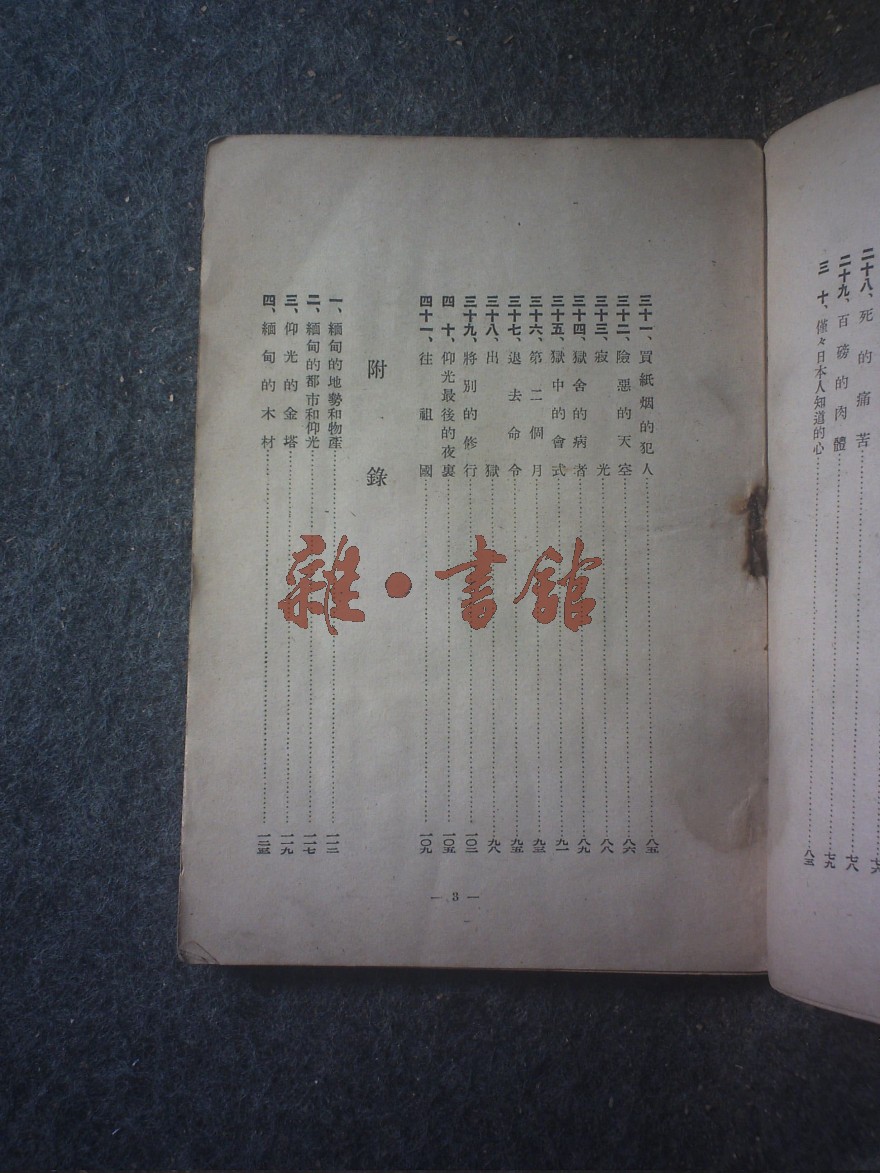 二十八、死的痛苦……七六
二十九、百磅的肉體……七八
七九
三十、僅々日本人知道的心……八三
三十一、買紙烟的犯人……八五
三十二、險惡的天空……八六
三十三、寂光……八八
三十四、獄舍的病者……八九
三十五、獄中的會式……九一
三十六、第二個月……九三
三十七、退去命令……九五
三十八、出獄……九八
三十九、將別的修行……一〇二
四十、仰光最後的夜裏……一〇五
四十一、往祖國……一〇九
附錄
一、緬甸的地勢和物產……一一三
二、緬甸的都市和仰光……一一七
三、仰光的金塔……一一九
四、緬甸的木材……一二五
— 3 —
雜·書館